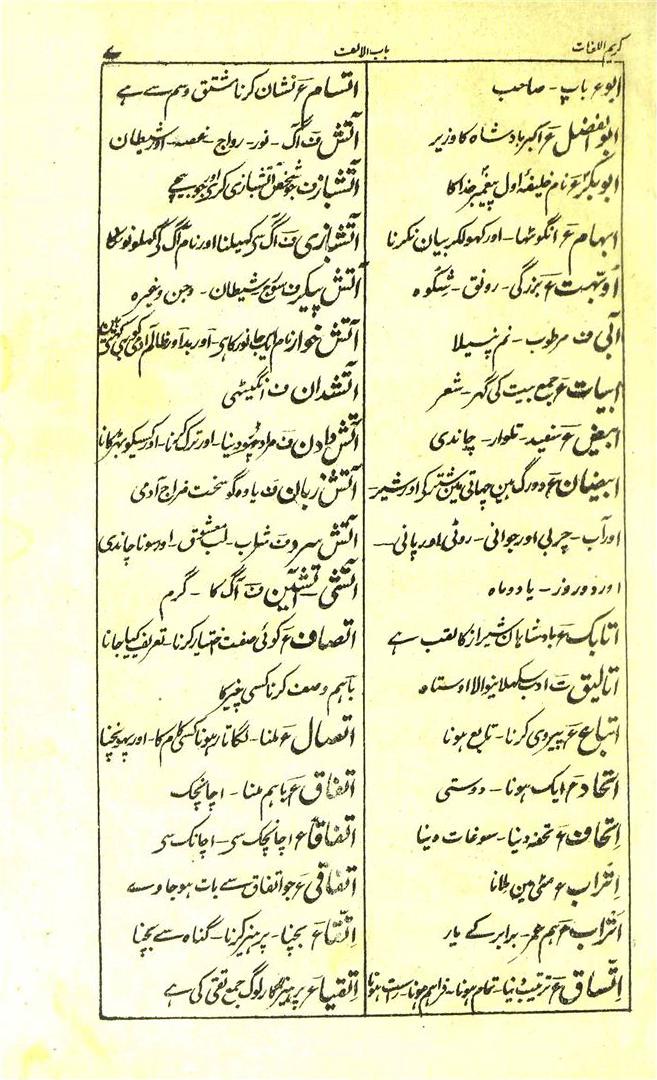 کریم اللغات
باب الالف
۷
ابو ع باپ - صاحب
ابوالفضل ع اکبر بادشاہ کا وزیر
ابوبکر ع نام خلیفۂ اول پیغمبر خدا کا
ابہام ع انگوٹھا - اور کھولکر بیان نکرنا
اُوبَّہت ع بزرگی - رونق - شِکوہ
آبی ف مرطوب - نم
ابیات ع جمع بیت کی گہر - شعر
ابیض ع سفید - تلوار - چاندی
ابیضان ع دو رگ ہین چہاتی مین شتر کی اور شیر -
اور آب - چربی اور جوانی - روٹی اور پانی -
اور دو روز - یا دو ماہ
اتابک ع بادشاہان شیراز کا لقب ہے
اتالیق ت ادب سکھلانیوالا اوستاد
اتباع ع پیروی کرنا - تابع ہونا
اتحاد ع ایک ہونا - دوستی
اِتحاف ع تحفہ دینا - سوغات دینا
اِتراب ع مٹی مین ملانا
اَتراب ع ہم عمر - برابر کے یار
اِتّساق ع ترتیب دینا - تمام ہونا - فراہم ہونا - راست ہونا
اتسام ع نشان کرنا مشتق وسم سے ہے
آتش ف آگ - نور - رواج - غصہ - اور شیطان
آتشباز ف جو شخص آتشبازی کری اور بیچے
آتشبازی ف آگ سی کھیلنا اور نام آگ کی کھلونون کا
آتش پیکر ف سورج شیطان - و جن وغیرہ
آتش خوار نام ایک جانور کا ہی - اور بد اور ظالم آدمی کو بھی کہتی ہین
آتشدان ف انگیٹھی
آتش دادن ف مراد دینا - اور ترک کرنا - اور کسیکو بہڑکانا
آتش زبان ف یاوہ گو سخت مزاج آدمی
آتش سرد ف شراب - لب معشوق - اور سونا چاندی
آتشی - آتشین ف آگ کا - گرم
اتصاف ع کوئی صفت اختیار کرنا - تعریف کیا جانا
باہم وصف کرنا کسی چیز کا
اتصال ع ملنا - لگاتار ہونا کسی کام کا - اور پہونچنا
اتفاق ع باہم ملنا - اچانچک
اتفاقاً ع اچانچک سی - اچانک سی
اتفاقی ع جو اتفاق سے بات ہو جاوے
اِتّقا ع بچنا - پرہیز کرنا - گناہ سے بچنا
اتقیا ع پرہیزگار لوگ جمع تقی کی ہے